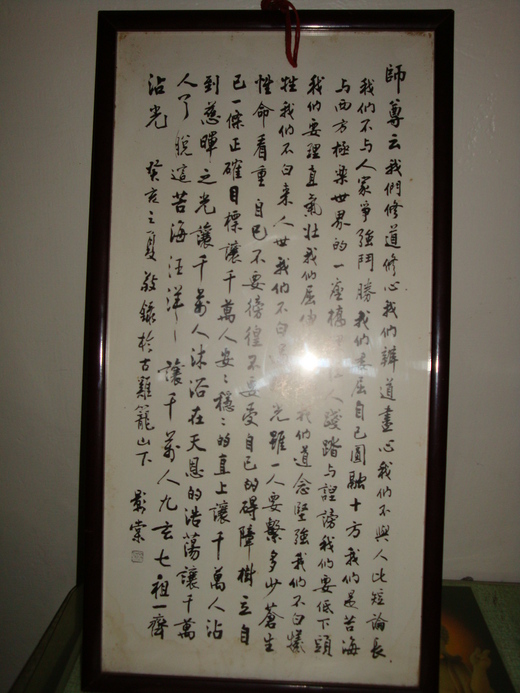 師尊云我們修道修心我們辦道盡心我們不與人比短論長
我們不与人家爭強鬥勝我們委屈自己圓融十方我們是苦海
与西方極樂世界的一座橋人踐踏与誹謗我們要低下頭
我們要理直氣壯我們屈伸我們道念堅強我們不白犧
牲我們不白來人世我們不白光雖一人要繫多少蒼生
性命看重自己不要徬徨不要受自己的碍障樹立自
己一條正確目標讓千萬人安〻穩〻的直上讓千萬人沾
到慈暉之光讓千萬人沐浴在天恩的浩蕩讓千萬
人了脫這苦海汪洋〻讓千萬人九玄七祖一齊
沾光 癸亥之夏敬錄於古雞籠山下 棠